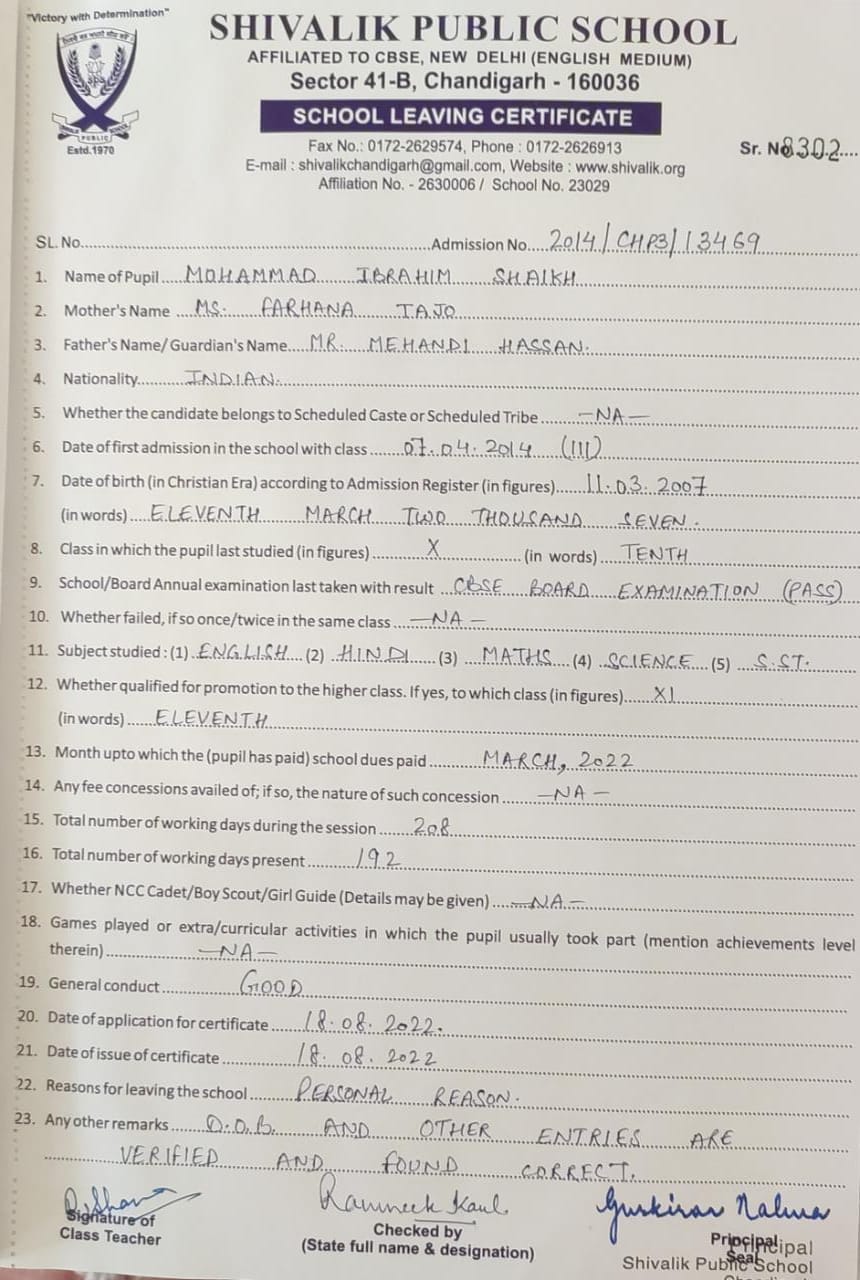 "Victory with Determination"
SHIVALIK PUBLIC SCHOOL
AFFILIATED TO CBSE, NEW DELHI (ENGLISH MEDIUM)
Sector 41-B, Chandigarh - 160036
SCHOOL LEAVING CERTIFICATE
PUBLIC
Estd.1970
Fax No.: 0172-2629574, Phone : 0172-2626913
E-mail : shivalikchandigarh@gmail.com, Website : www.shivalik.org
Affiliation No. - 2630006 / School No. 23029
Sr. No 8302
SL. No. Admission No. 2014/CHP3/13469
1. Name of Pupil MOHAMMAD IBRAHIM SHAIKH
2. Mother's Name MS. FARHANA TAJO
3. Father's Name/ Guardian's Name MR. MEHANDI HASSAN.
4. Nationality INDIAN.
5. Whether the candidate belongs to Scheduled Caste or Scheduled Tribe -NA-
6. Date of first admission in the school with class 07.04.2014 (III)
7. Date of birth (in Christian Era) according to Admission Register (in figures) 11.03.2007
(in words) ELEVENTH MARCH TWO THOUSAND SEVEN.
8. Class in which the pupil last studied (in figures) X (in words) TENTH
9. School/Board Annual examination last taken with result CBSE BOARD EXAMINATION (PASS)
10. Whether failed, if so once/twice in the same class -NA-
11. Subject studied : (1) ENGLISH (2) HINDI (3) MATHS (4) SCIENCE (5) S.ST.
12. Whether qualified for promotion to the higher class. If yes, to which class (in figures) XI
(in words) ELEVENTH
13. Month upto which the (pupil has paid) school dues paid MARCH, 2022
14. Any fee concessions availed of; if so, the nature of such concession -NA-
15. Total number of working days during the session 208
16. Total number of working days present 192
17. Whether NCC Cadet/Boy Scout/Girl Guide (Details may be given) -NA-
18. Games played or extra/curricular activities in which the pupil usually took part (mention achievements level
therein) -NA-
19. General conduct GOOD
20. Date of application for certificate 18.08.2022.
21. Date of issue of certificate 18.08.2022
22. Reasons for leaving the school PERSONAL REASON.
23. Any other remarks D.O.B. AND OTHER ENTRIES ARE
VERIFIED AND FOUND CORRECT.
Ramneek Kaul
Signature of
Class Teacher
Checked by
(State full name & designation)
Principal
Seal
Principal
Shivalik Public School